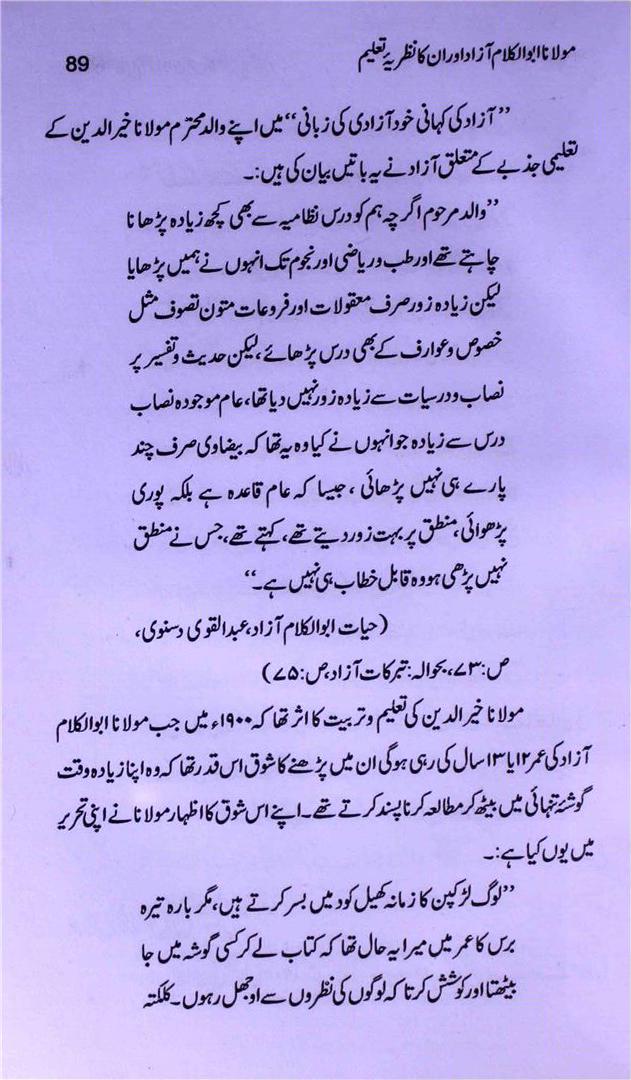 مولانا ابوالکلام آزاد اور ان کا نظریۂ تعلیم 89
”آزاد کی کہانی خود آزادی کی زبانی“ میں اپنے والد محترم مولانا خیر الدین کے
تعلیمی جذبے کے متعلق آزاد نے یہ باتیں بیان کی ہیں:۔
”والد مرحوم اگرچہ ہم کو درس نظامیہ سے بھی کچھ زیادہ پڑھانا
چاہتے تھے اور طب و ریاضی اور نجوم تک انہوں نے ہمیں پڑھایا
لیکن زیادہ زور صرف معقولات اور فروعات متون تصوف مثل
خصوص و عوارف کے بھی درس پڑھائے، لیکن حدیث و تفسیر پر
نصاب و درسیات سے زیادہ زور نہیں دیا تھا، عام موجودہ نصاب
درس سے زیادہ جو انہوں نے کیا وہ یہ تھا کہ بیضاوی صرف چند
پارے ہی نہیں پڑھائی ، جیسا کہ عام قاعدہ ہے بلکہ پوری
پڑھوائی، منطق پر بہت زور دیتے تھے، کہتے تھے، جس نے منطق
نہیں پڑھی ہو وہ قابل خطاب ہی نہیں ہے۔“
(حیات ابوالکلام آزاد، عبدالقوی دسنوی،
ص: ۷۳، بحوالہ: تبرکات آزاد، ص: ۷۵)
مولانا خیر الدین کی تعلیم و تربیت کا اثر تھا کہ ۱۹۰۰ء میں جب مولانا ابوالکلام
آزاد کی عمر ۱۲ یا ۱۳ سال کی رہی ہوگی ان میں پڑھنے کا شوق اس قدر تھا کہ وہ اپنا زیادہ وقت
گوشۂ تنہائی میں بیٹھ کر مطالعہ کرنا پسند کرتے تھے۔ اپنے اس شوق کا اظہار مولانا نے اپنی تحریر
میں یوں کیا ہے:۔
”لوگ لڑکپن کا زمانہ کھیل کود میں بسر کرتے ہیں، مگر بارہ تیرہ
برس کا عمر میں میرا یہ حال تھا کہ کتاب لے کر کسی گوشہ میں جا
بیٹھتا اور کوشش کرتا کہ لوگوں کی نظروں سے اوجھل رہوں۔ کلکتہ